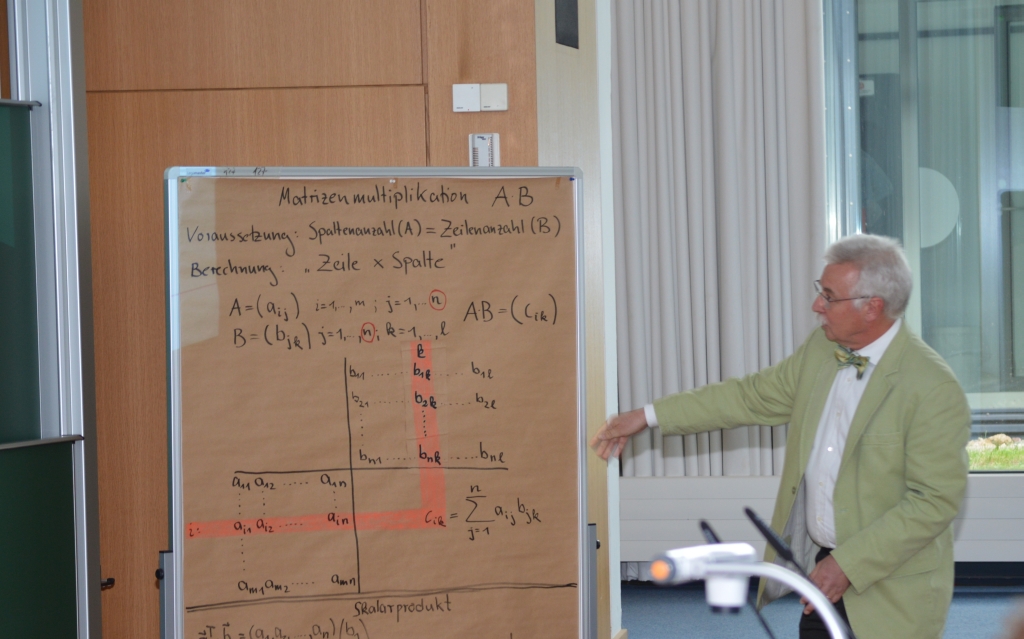 Matrizenmultiplikation A·B
Voraussetzung: Spaltenanzahl(A) = Zeilenanzahl(B)
Berechnung: „Zeile x Spalte"
A=(aᵢⱼ) i=1,..,m ; j=1,..n AB=(cᵢₖ)
B=(bⱼₖ) j=1,..,n; k=1,..,l
k
b₁₁ ..... b₁ₖ ..... b₁ₗ
b₂₁ ..... b₂ₖ ..... b₂ₗ
bₙ₁ ..... bₙₖ ..... bₙₗ
a₁₁ a₁₂ ..... a₁ₙ
i: aᵢ₁ aᵢ₂ ..... aᵢₙ cᵢₖ = ∑ⱼ₌₁ⁿ aᵢⱼ bⱼₖ
aₘ₁ aₘ₂ ..... aₘₙ
Skalarprodukt
= (a₁, a₂, ..., aₙ) (b₁